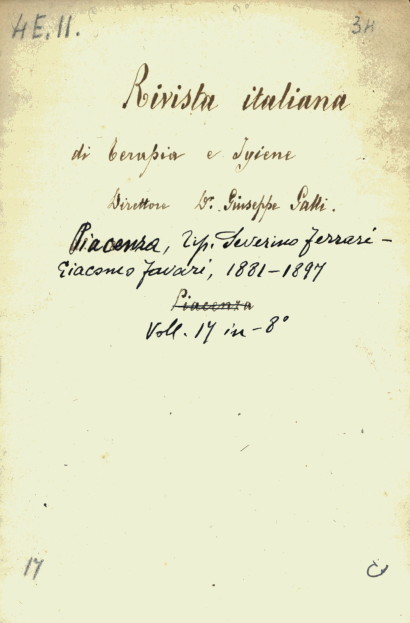 4E.11. 34
Rivista italiana
di Terapia e Igiene
Direttore Dr. Giuseppe Galli.
Piacenza, Tip. Severino Ferrari –
Giacomo Favari, 1881–1897
Piacenza
Voll. 17 in – 8°
17